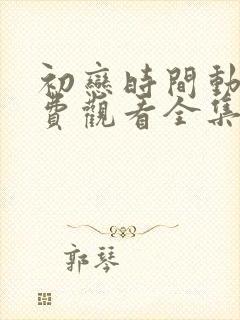 初戀時間動
費觀看全集
郭琴